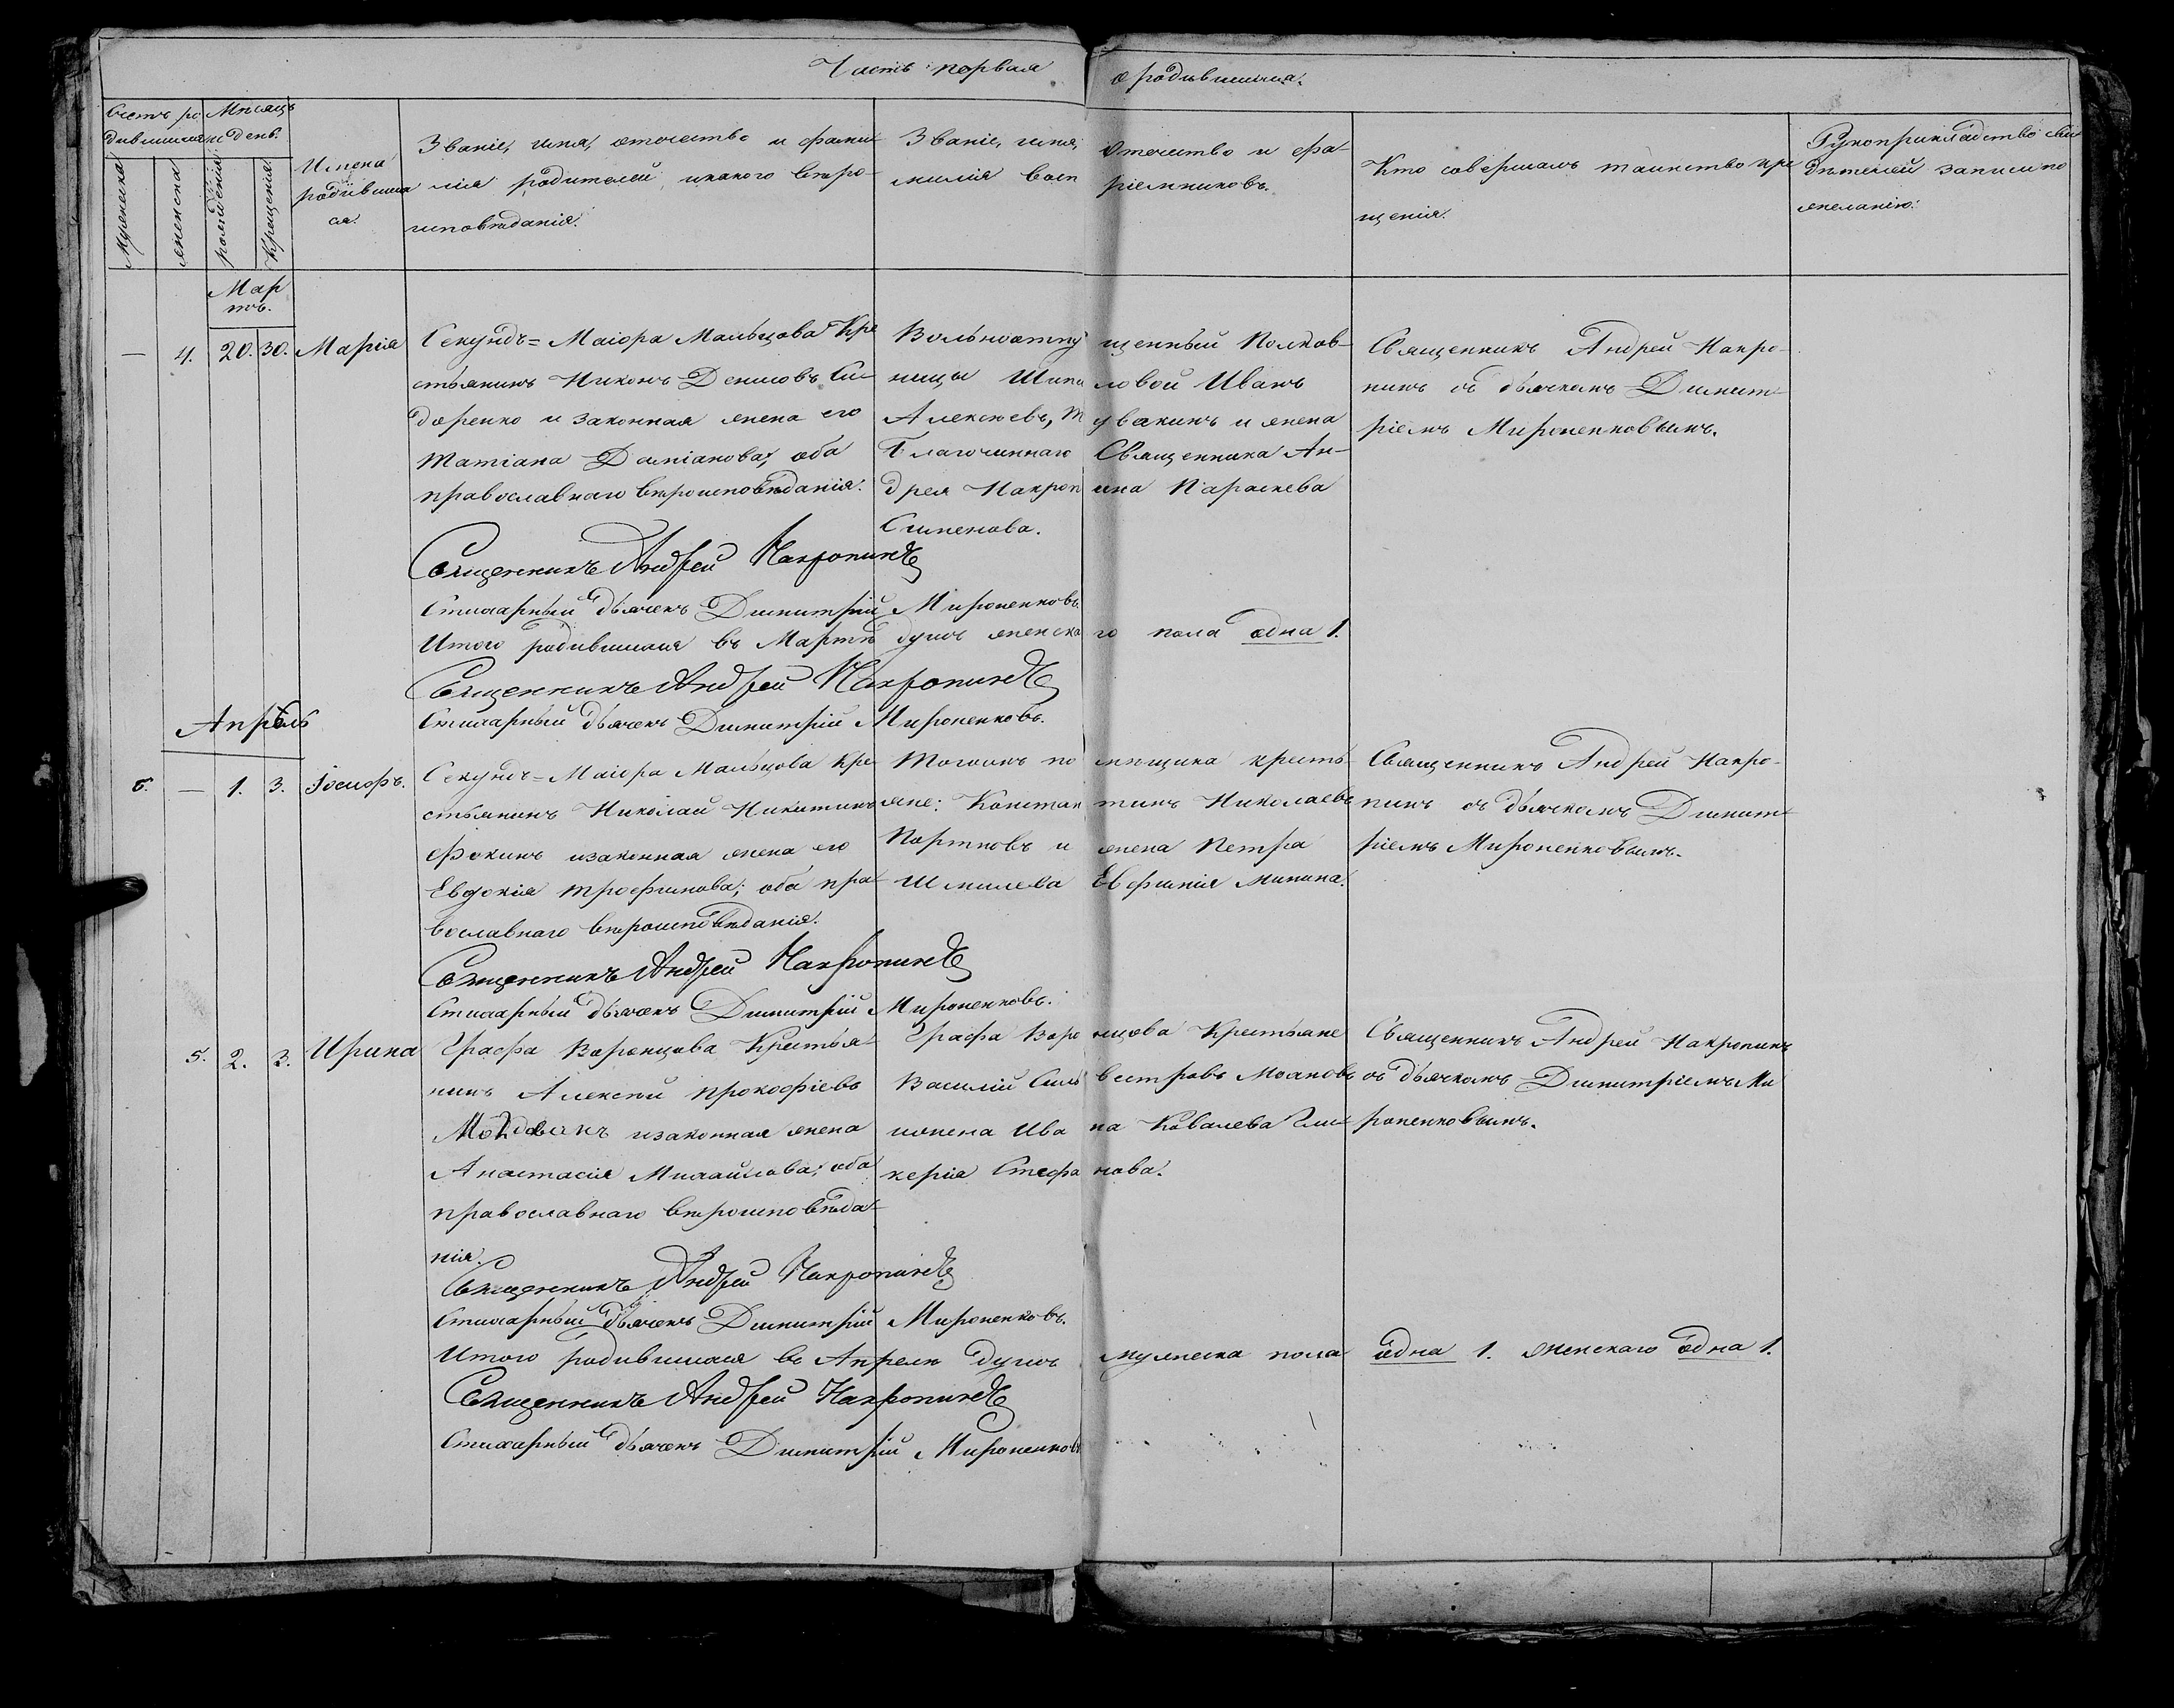 Часть первая о родившихся.
Счетъ ро- Мѣсяцъ
дившихся и день.
Мужеска
женска
рожденія
Крещенія
Имена
родивших
ся.
Званіе, имя, отчество и фами-
лія родителей, и какого вѣро-
исповѣданія.
Званіе, имя, отчество и фа-
милія воспріемниковъ.
Кто совершалъ таинство кре
щенія.
Рукоприкладство сви
дѣтелей записи по
желанію.
Мар
тъ.
— 4. 20. 30. Марія
Секундъ=Маіора Мальцова Кре
стьянинъ Никонъ Денисовъ Си-
доренко и законная жена его
Татіана Даміанова, оба
православнаго вѣроисповѣданія.
Вольноотпущенный Полков-
ницы Шиповой Иванъ
Алексѣевъ, и жена
Благочиннаго Священника Ан-
дрея Накропина Параскева
Сименова.
Священникъ Андрей Накро-
пинъ съ дьячкомъ Димит-
ріемъ Мироненковымъ.
Священникъ Андрей Накропинъ
Стихарный дьячекъ Димитрій Мироненковъ.
Итого родившихся въ Мартѣ душъ женскаго пола одна 1.
Священникъ Андрей Накропинъ
Стихарный дьячекъ Димитрій Мироненковъ.
Апрѣль
6. — 1. 3. Іосифъ.
Секундъ=Маіора Мальцова Кре
стьянинъ Николай Никитинъ
Фокинъ и законная жена его
Евдокія Трофимова; оба пра-
вославнаго вѣроисповѣданія.
Тогожъ помѣщика кресть-
яне: Константинъ Николаевъ
Портновъ и жена Петра
Шмилева Евфимія Минина.
Священникъ Андрей Накро-
пинъ съ дьячкомъ Димит-
ріемъ Мироненковымъ.
Священникъ Андрей Накропинъ
Стихарный дьячекъ Димитрій Мироненковъ.
5. 2. 3. Ирина
Графа Воронцова Крестья-
нинъ Алексѣй Прокофіевъ
Молдованъ и законная жена
Анастасія Михайлова; оба
православнаго вѣроисповѣда-
нія.
Графа Воронцова Крестьяне
Василій Сильвестровъ
и жена Ивана Ковалева Гли-
керія Стефанова.
Священникъ Андрей Накропинъ
съ дьячкомъ Димитріемъ Ми
роненковымъ.
Священникъ Андрей Накропинъ
Стихарный дьячекъ Димитрій Мироненковъ.
Итого родившихся въ Апрелѣ душъ мужеска пола одна 1. женскаго одна 1.
Священникъ Андрей Накропинъ
Стихарный дьячекъ Димитрій Мироненковъ